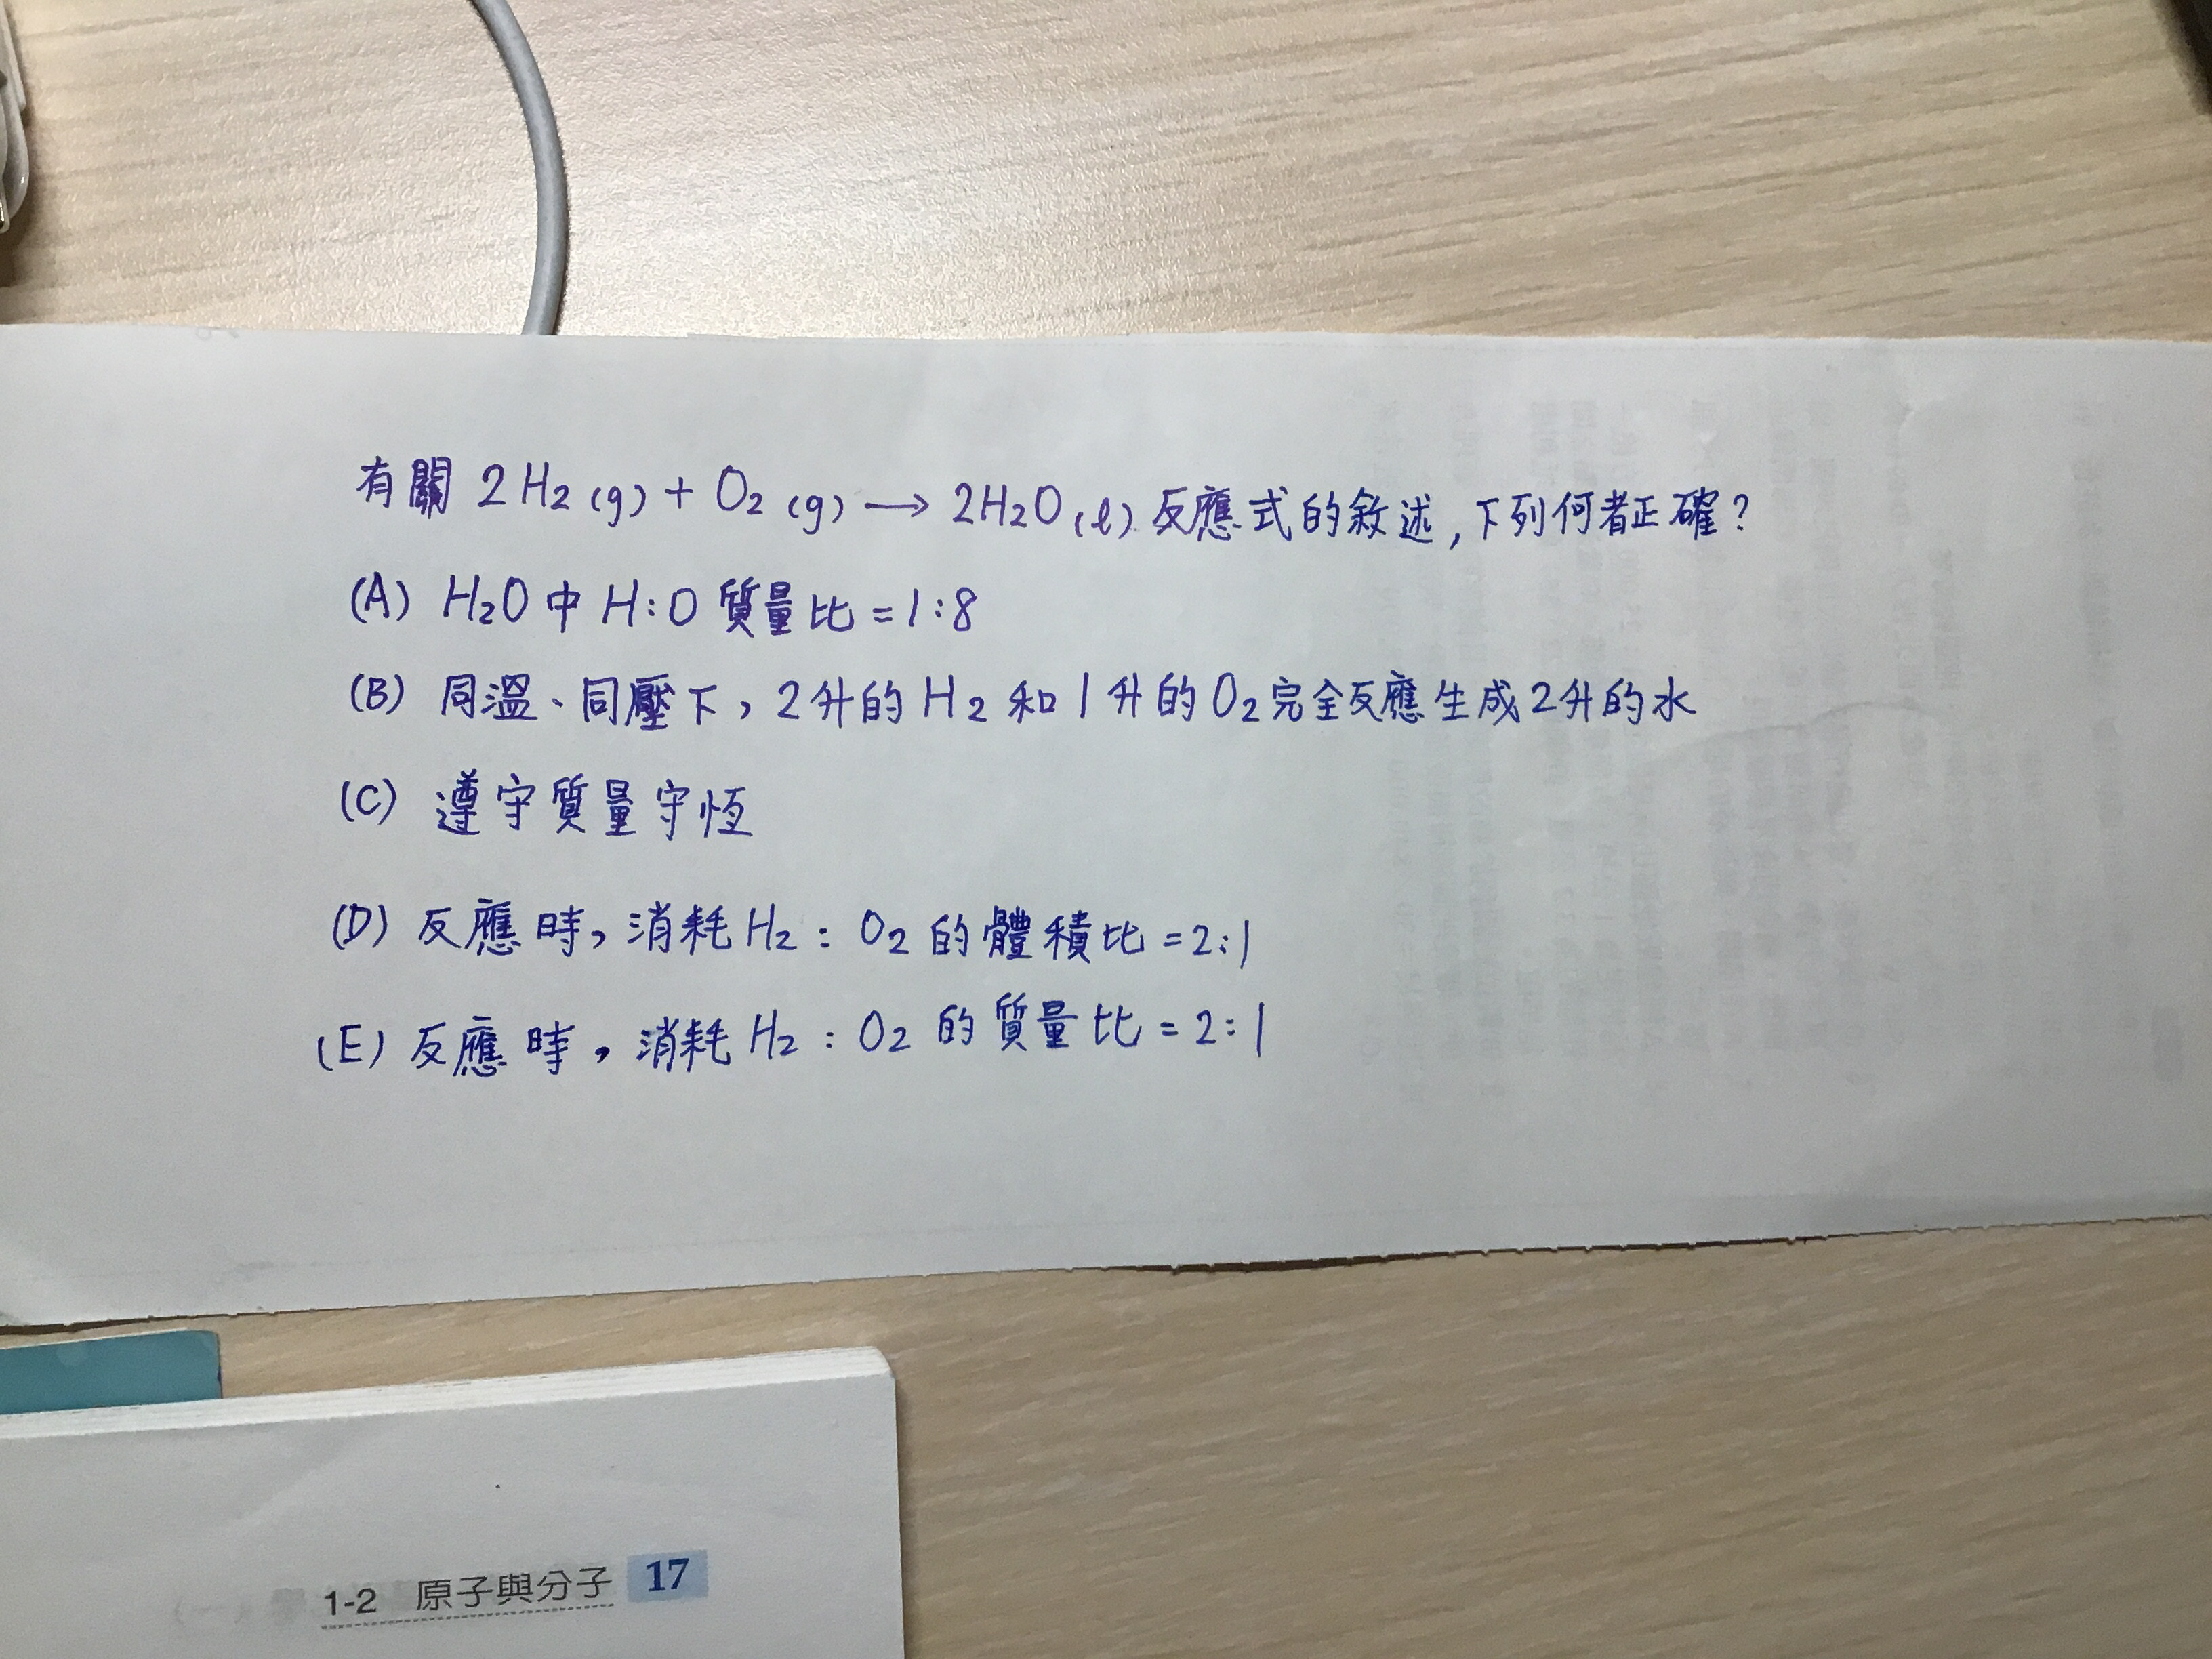 有關 2H₂(g) + O₂(g) → 2H₂O(l) 反應式的敘述,下列何者正確?
(A) H₂O中 H:O 質量比=1:8
(B) 同溫、同壓下,2升的H₂和1升的O₂完全反應生成2升的水
(C) 遵守質量守恆
(D) 反應時,消耗H₂:O₂的體積比=2:1
(E) 反應時,消耗H₂:O₂的質量比=2:1
1-2 原子與分子 17